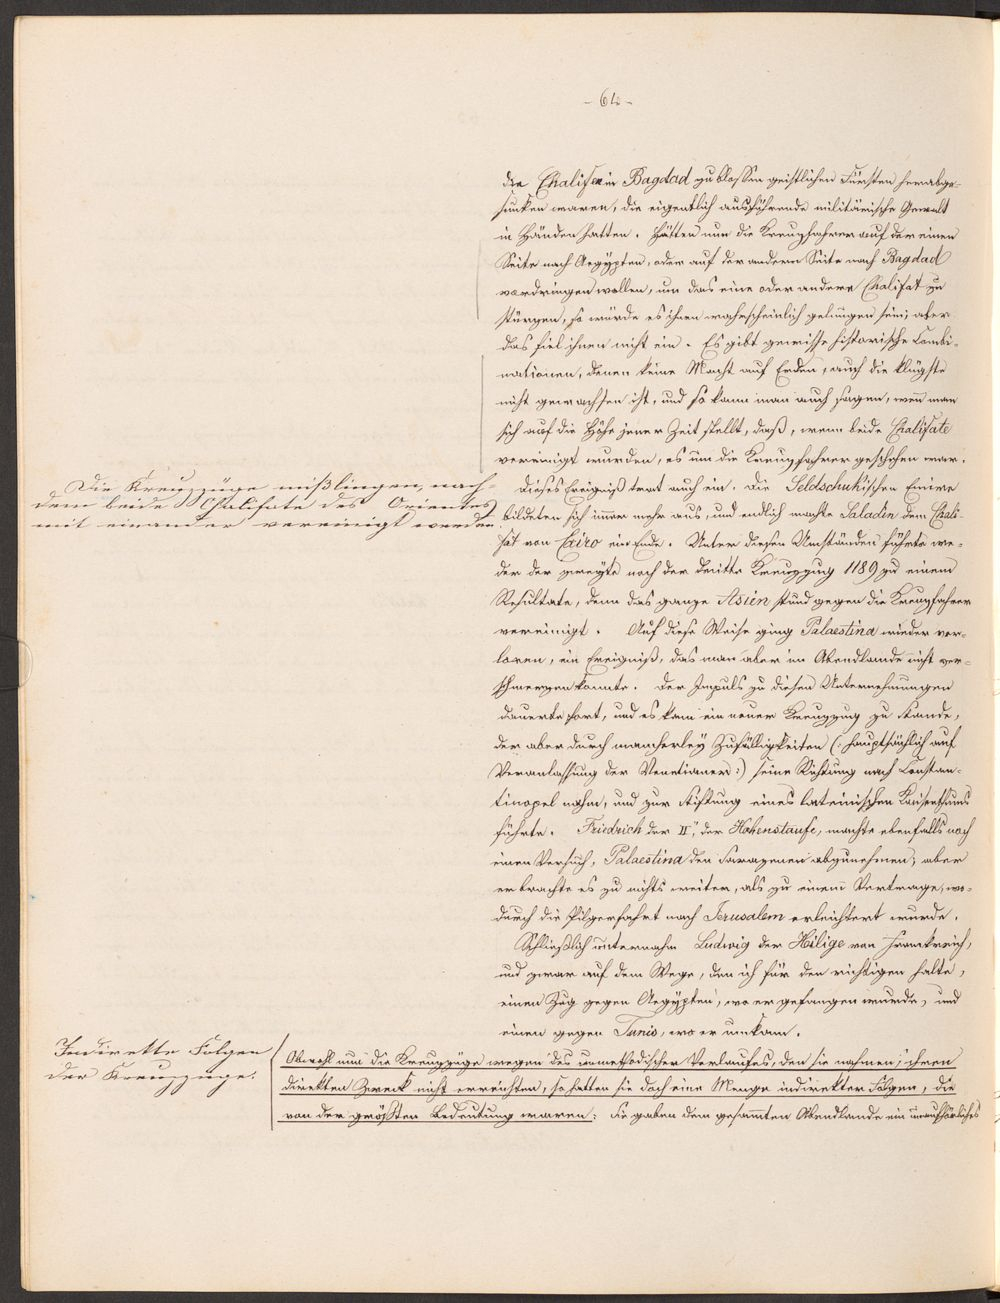 - 64 -
die Chalifen in Bagdad zu blossen geistlichen Fürsten herabge-
sunken waren, die eigentlich ausführende militärische Gewalt
in Händen hatten. Hätten nun die Kreuzfahrer auf der einen
Seite nach Aegypten, oder auf der andern Seite nach Bagdad
vordringen wollen, um das eine oder andere Chalifat zu
stürzen, so würde es ihnen wahrscheinlich gelungen sein; aber
das fiel ihnen nicht ein. Es gibt gewisse historische Combi-
nationen, denen keine Macht auf Erden, auch die klügste
nicht gewachsen ist, und so kann man auch sagen, wenn man
sich auf die Höhe jener Zeit stellt, daß, wenn beide Chalifate
vereinigt wurden, es um die Kreuzfahrer geschehen war.
Die Kreuzzüge mißlingen, nach-
dem beide Chalifate des Orientes
mit einander vereinigt werden.
Dieses Ereigniß trat auch ein. Die Seldschukischen Emire
bildeten sich immer mehr aus, und endlich machte Saladin dem Chali-
fat von Cairo ein Ende. Unter diesen Umständen führte we-
der der zweyte noch der dritte Kreuzzug 1189 zu einem
Resultate, denn das ganze Asien stund gegen die Kreuzfahrer
vereinigt. Auf diese Weise ging Palaestina wieder ver-
loren, ein Ereigniß, das man aber im Abendlande nicht ver-
schmerzen konnte. Der Impuls zu diesen Unternehmungen
dauerte fort, und es kam ein neuer Kreuzzug zu Stande,
der aber durch mancherley Zufälligkeiten (: hauptsächlich auf
Veranlassung der Venetianer :) seine Richtung nach Constan-
tinopel nahm, und zur Stiftung eines lateinischen Kaiserthums
führte. Friedrich der II, der Hohenstaufe, machte ebenfalls noch
einen Versuch, Palaestina den Sarazenen abzunehmen, aber
er brachte es zu nichts weiter, als zu einem Vertrage, wo-
durch die Pilgerfahrt nach Jerusalem erleichtert wurde.
Schließlich unternahm Ludwig der Hilige von Frankreich,
und zwar auf dem Wege, den ich für den richtigen halte,
einen Zug gegen Aegypten, wo er gefangen wurde, und
einen gegen Tunis, wo er umkam.
Indirekte Folgen
der Kreuzzüge.
Obwohl nun die Kreuzzüge wegen des unmethodischen Verlaufes, den sie nahmen, ihren
direkten Zweck nicht erreichten, so hatten sie doch eine Menge indirekter Folgen, die
von der größten Bedeutung waren: Sie gaben dem gesamten Abendlande ein unaufhörliches